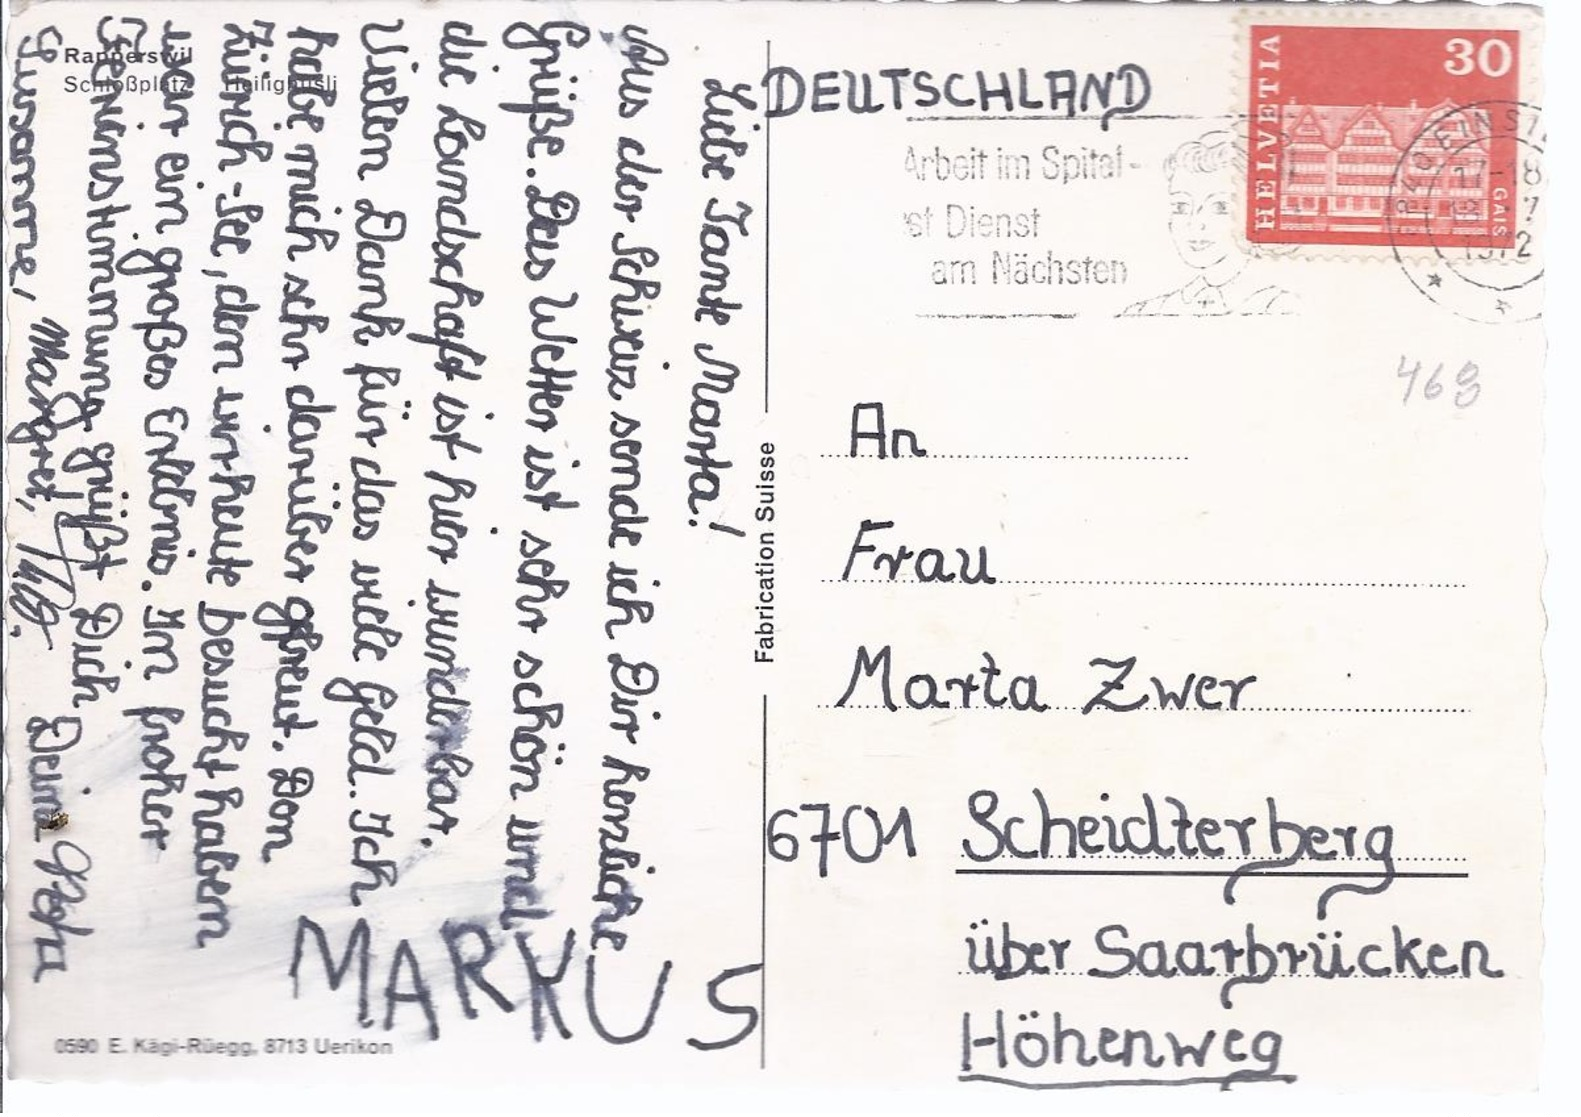 Rapperswil
Schloßplatz Heilighüsli
Liebe Tante Marta!
Aus der Schweiz sende ich Dir herzliche
Grüße. Das Wetter ist sehr schön und
die Landschaft ist hier wunderbar.
Vielen Dank für das viele Geld. Ich
habe mich sehr darüber gfreut. Den
Zürich-See, den wir heute besucht haben
war ein großes Erlebnis. Im froher
Ferienstimmung grüßt Dich Deine
Susanne, Margret,
MARKUS
0590 E. Kägi-Rüegg, 8713 Uerikon
Fabrication Suisse
DEUTSCHLAND
Arbeit im Spital -
ist Dienst
am Nächsten
HELVETIA
30
GAIS
EINS
17-18
7
1972
468
An
Frau
Marta Zwer
6701 Scheidterberg
über Saarbrücken
Höhenweg